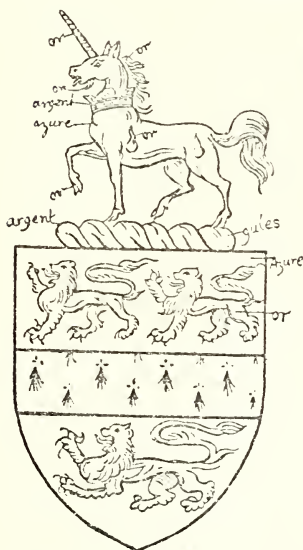 or
or
or
argent
azure
or
or
argent
gules
Azure
or